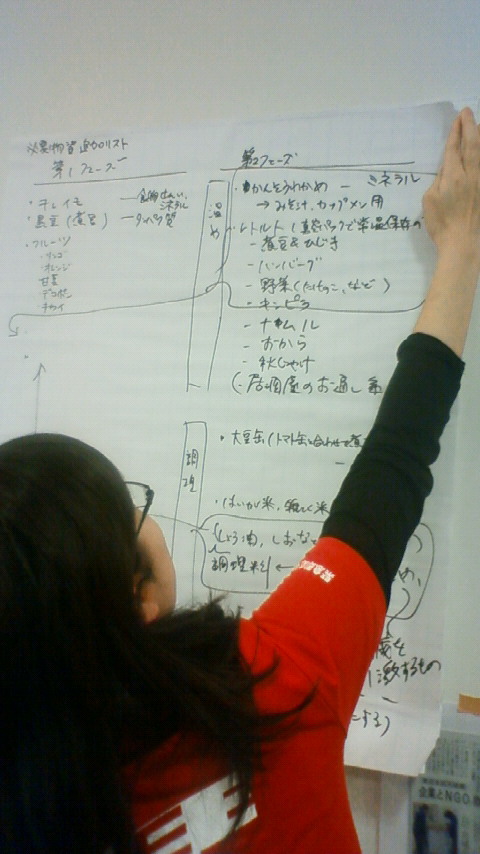 必要物資追加リスト
第1フェーズ
・干しイモ — 食物せんい、ミネラル
・黒豆(煮豆) — タンパク質
・フルーツ
・リンゴ
・オレンジ
・甘夏
・デコポン
第2フェーズ
温め
・かんそうわかめ — ミネラル
→ みそ汁、カップメン用
・レトルト(真空パックで常温保存の
- 煮豆&ひじき
- ハンバーグ
- 野菜(たけのこ、など)
- キンピラ
- ナムル
- おから
- 秋じゃけ
(-居酒屋のお通し系
調理
・大豆缶(トマト缶と合わせて煮
・はいが米、雑こく米
しょう油、しおなど
調理料 ←
激するもの
にする)
企業とNGO